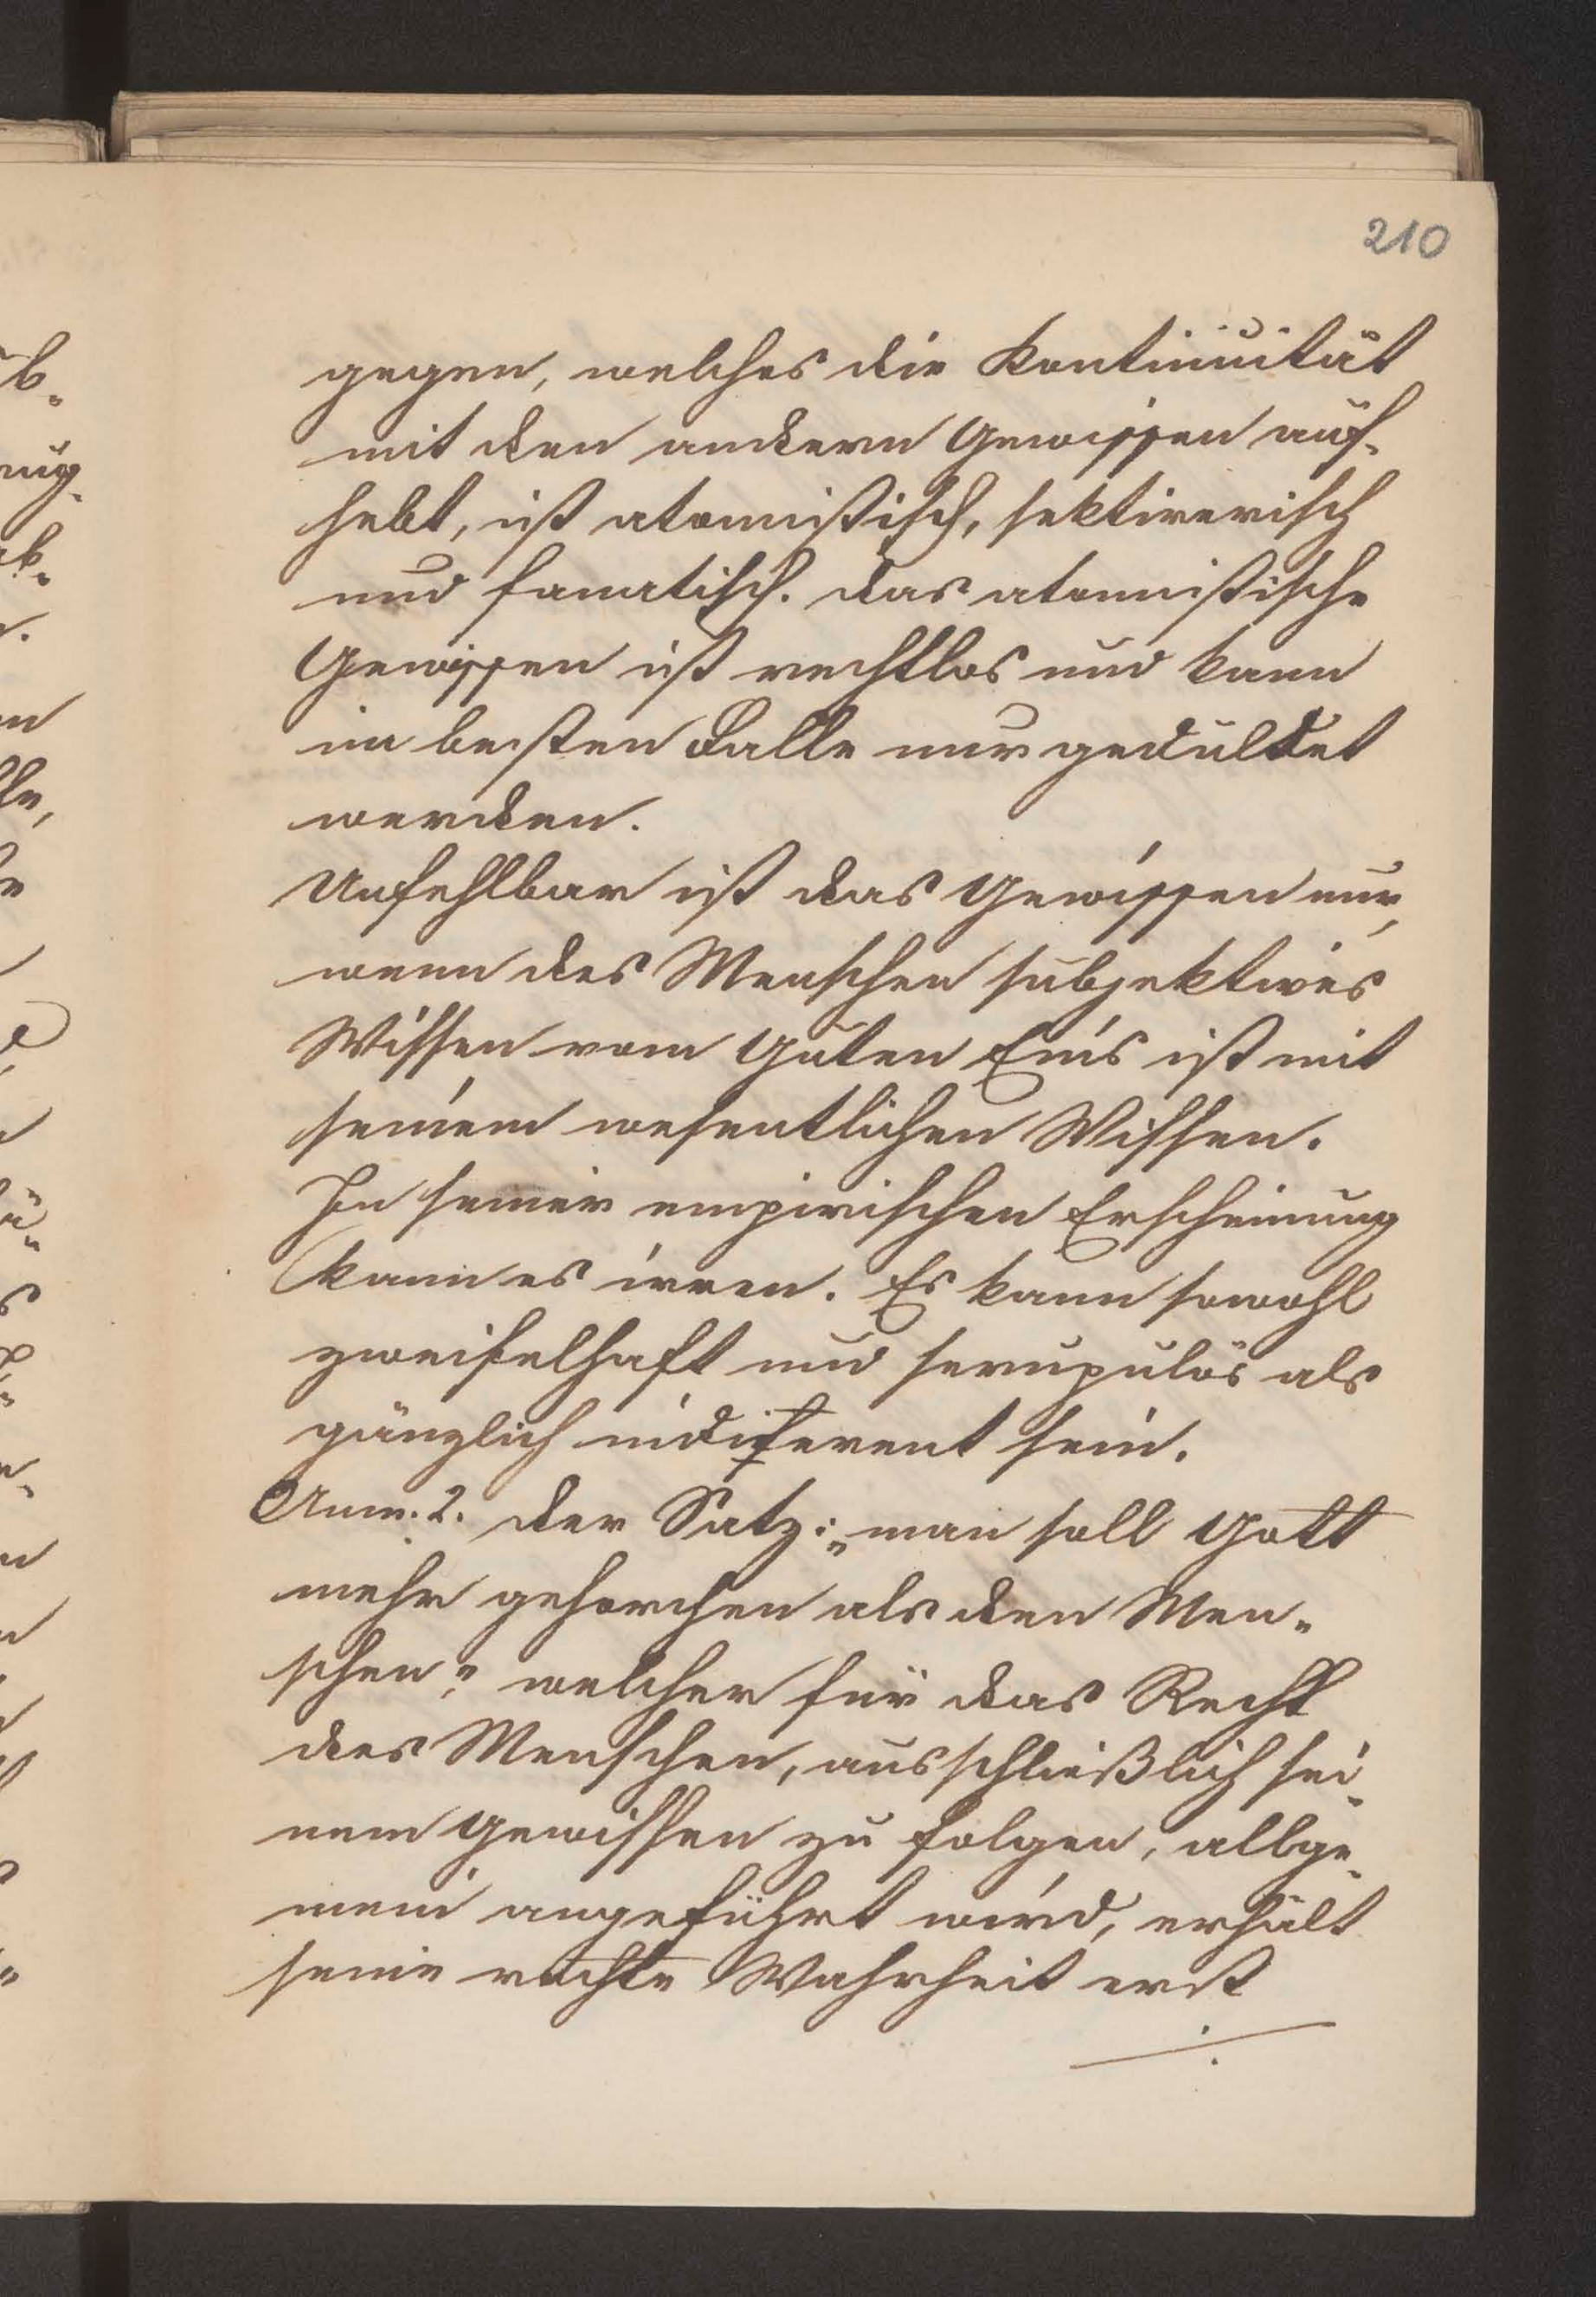 210
gegen, welches die Kontinuität
mit den andern Gewissen auf-
hebt, ist atomistisch, sektirerisch
und fanatisch. Das atomistische
Gewissen ist rechtlos und kann
im besten Falle nur geduldet
werden.
Unfehlbar ist das Gewissen nur,
wenn des Menschen subjektives
Wissen vom Guten Eins ist mit
seinem wesentlichen Wissen.
In seiner empirischen Erscheinung
kann es irren. Es kann sowohl
zweifelhaft und scrupulös als
gänzlich indiferent sein.
Anm. 2. Der Satz: „man soll Gott
mehr gehorchen als den Men-
schen", welcher für das Recht
des Menschen, ausschließlich sei-
nem Gewissen zu folgen, allge-
mein angeführt wird, erhält
seine rechte Wahrheit erst